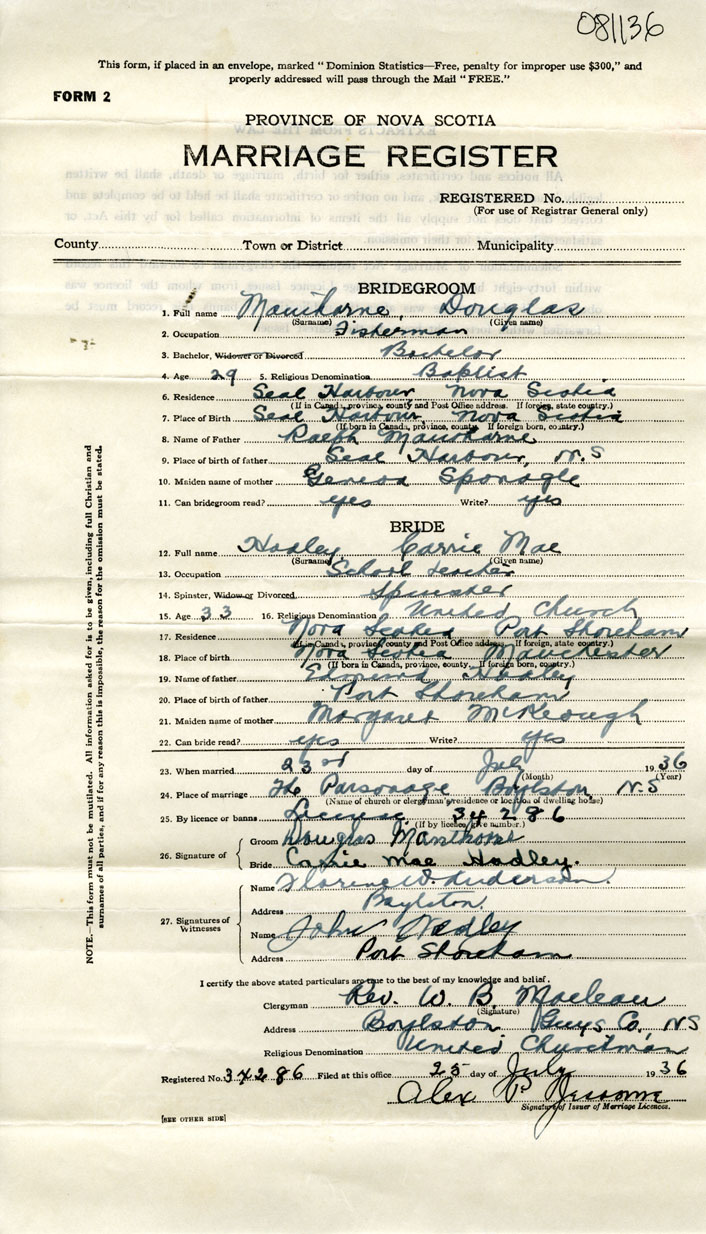 081136
This form, if placed in an envelope, marked "Dominion Statistics—Free, penalty for improper use $300," and
properly addressed will pass through the Mail "FREE."
FORM 2
PROVINCE OF NOVA SCOTIA
MARRIAGE REGISTER
REGISTERED No.
(For use of Registrar General only)
County Town or District Municipality
BRIDEGROOM
1. Full name Mawthorne, Douglas
(Surname) (Given name)
2. Occupation Fisherman
3. Bachelor, Widower or Divorced Bachelor
4. Age 29 5. Religious Denomination Baptist
6. Residence Seal Harbour, Nova Scotia
(If in Canada, province, county and Post Office address. If foreign, state country.)
7. Place of Birth Seal Harbour, Nova Scotia
(If born in Canada, province, county. If foreign born, country.)
8. Name of Father Ralph Mawthorne
9. Place of birth of father Seal Harbour, N.S
10. Maiden name of mother Geneva Sponagle
11. Can bridegroom read? yes Write? yes
BRIDE
12. Full name Hadley Carrie Mae
(Surname) (Given name)
13. Occupation School teacher
14. Spinster, Widow or Divorced Spinster
15. Age 33 16. Religious Denomination United Church
17. Residence Nova Scotia Port Shoreham
(If in Canada, province, county and Post Office address. If foreign, state country.)
18. Place of birth Nova Scotia Manchester
(If born in Canada, province, county. If foreign born, country.)
19. Name of father Edmund Hadley
20. Place of birth of father Port Shoreham
21. Maiden name of mother Margaret McKeough
22. Can bride read? yes Write? yes
23. When married 23rd day of July 1936
(Month) (Year)
24. Place of marriage The Parsonage Boylston N.S
(Name of church or clergyman's residence or location of dwelling house)
25. By licence or banns License 34286
(If by licence, give number.)
26. Signature of Groom Douglas Manthorne
Bride Carrie Mae Hadley.
27. Signatures of Witnesses
Name Florence W. Anderson.
Address Boylston.
Name John Hadley
Address Port Shoreham
I certify the above stated particulars are true to the best of my knowledge and belief.
Clergyman Rev. W. B. Maclean
(Signature)
Address Boylston Guys Co, NS
Religious Denomination United Churchman
Registered No. 34286 Filed at this office 25 day of July 1936
Alex P
Signature of Issuer of Marriage Licences.
[SEE OTHER SIDE]
NOTE.—This form must not be mutilated. All information asked for is to be given, including full Christian and
surnames of all parties, and if for any reason this is impossible, the reason for the omission must be stated.